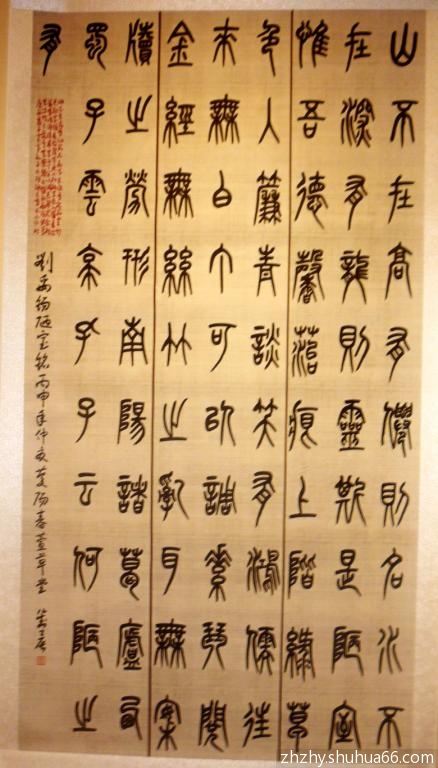 山不在高有僊則名水不
在深有龍則靈斯是陋室
惟吾德馨菭痕上階綠草
色入簾青談笑有鴻儒往
來無白丁可以調素琴閱
金經無絲竹之亂耳無案
牘之勞形南陽諸葛廬西
蜀子雲亭孔子云何陋之
有
劉禹錫陋室銘丙申年仲夏春萱草堂
zhzhy.shuhua66.com